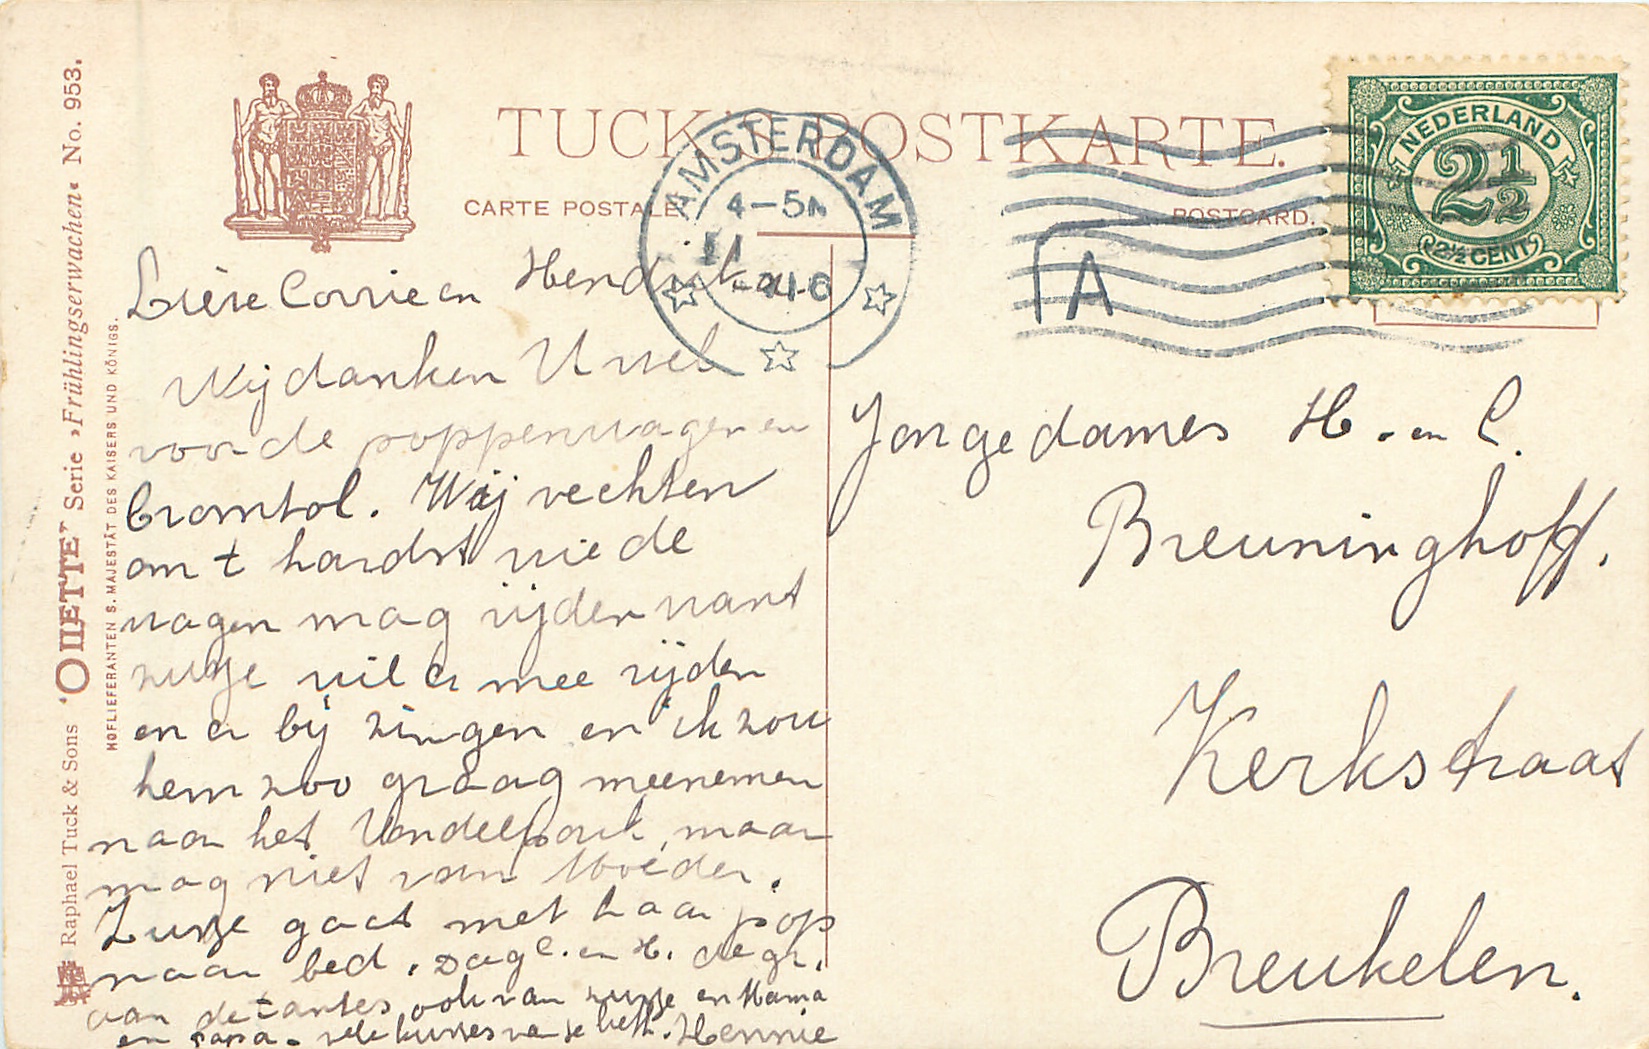 TUCK'S POSTKARTE.
CARTE POSTALE
POSTCARD.
AMSTERDAM
4-5N
NEDERLAND
2½
2½ CENT
A
Raphael Tuck & Sons "OILETTE" Serie »Frühlingserwachen« No. 953.
HOFLIEFERANTEN S. MAJESTÄT DES KAISERS UND KÖNIGS.
Lieve Corrie en Hendrika
Wij danken U wel
voor de poppenwagen en
bromtol. Wij vechten
om t hardst wie de
wagen mag rijden want
zusje wil er mee rijden
en er bij zingen en ik zou
hem zoo graag meenemen
naar het Vondelpark, maar
mag niet van Moeder.
Zusje gaat met haar pop
naar bed. Dag C. en H. de gr.
aan de tantes ook van zusje en Mama
en Papa. vele kusjes van je Hennie
Jongedames H. en C.
Breuninghoff.
Kerkstraat
Breukelen.